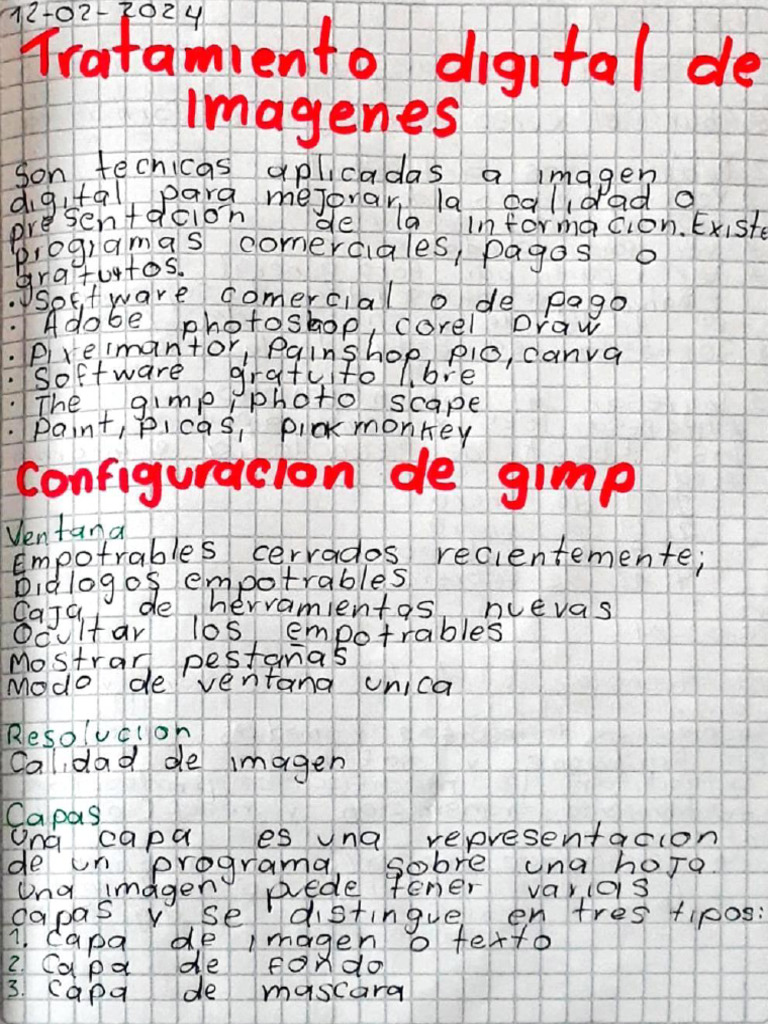 12-02-2024
Tratamiento digital de
imagenes
Son tecnicas aplicadas a imagen
digital para mejorar la calidad o
presentacion de la informacion. Existe
programas comerciales, pagos o
gratuitos.
. Software comercial o de pago
. Adobe photoshop, corel Draw
. Pixelmantor, Painshop, pio, canva
. Software gratuito libre
. The gimp, photo scape
. paint, picas, pink monkey
Configuracion de gimp
Ventana
Empotrables cerrados recientemente;
Dialogos empotrables
Caja de herramientas nuevas
Ocultar los empotrables
Mostrar pestañas
Modo de ventana unica
Resolucion
Calidad de imagen
Capas
Una capa es una representacion
de un programa sobre una hoja.
Una imagen puede tener varias
capas y se distingue en tres tipos:
1. Capa de imagen o texto
2. Capa de fondo
3. Capa de mascara